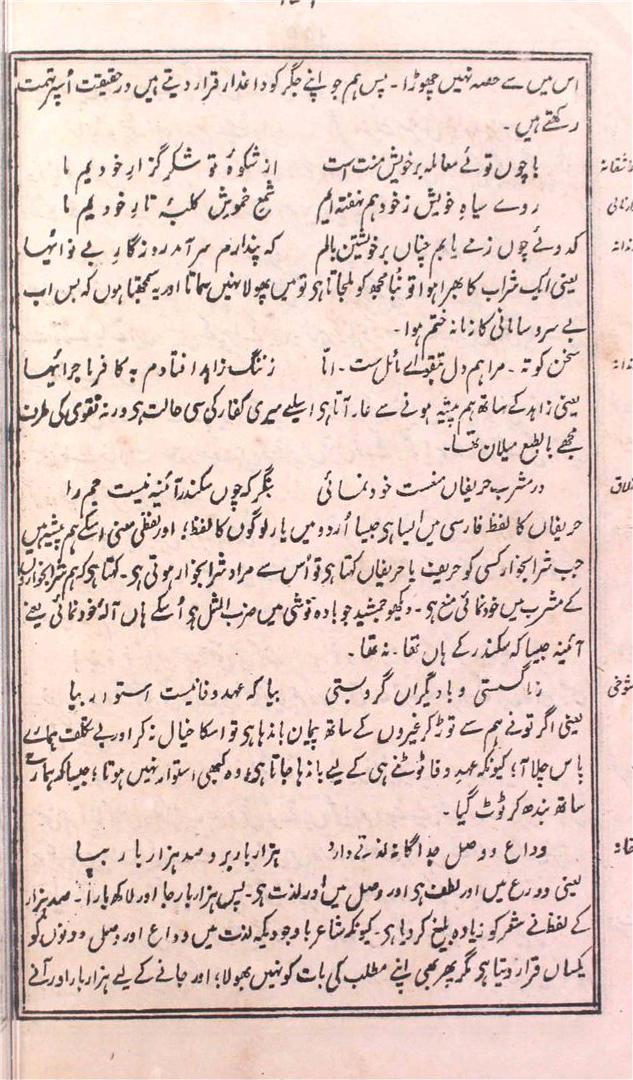 اس میں سے حصہ نہیں چھوڑا ۔ پس ہم جو اپنے جگر کو داغدار قرار دیتے ہیں درحقیقت اُسپر تہمت
رکھتے ہیں ۔
با چوں توئے معاملہ بر خویش منت است از شکوۂ تو شکر گزارِ خودیم ما
روے سیاہِ خویش ز خود ہم نہفتہ ایم شمعِ خموش کلبۂ تارِ خودیم ما
کدوئے چوں ز مے یابم چناں بر خویشتن بالم کہ پندارم سرآمد روزگارِ بے نوائیہا
یعنی ایک شراب کا بھرا ہوا تونبا مجھ کو ملجاتا ہی تو میں پھولا نہیں سماتا اور یہ سمجھتا ہوں کہ بس اب
بے سروسامانی کا زمانہ ختم ہوا ۔
سخن کوتہ ۔ مرا ہم دل بتقویٰ مائل ست ۔ امّا ز ننگِ زاہد افتادم بہ کافر ماجرائیہا
یعنی زاہد کے ساتھ ہم پیشہ ہونے سے عار آتا ہی اسلیے میری کفار کی سی حالت ہی ورنہ تقویٰ کی طرف
مجھے بالطبع میلان تھا ۔
در مشربِ حریفاں منعست خودنمائی بنگر کہ چوں سکندر آئینہ نیست جم را
حریفاں کا لفظ فارسی میں ایسا ہی جیسا اُردو میں یار لوگوں کا لفظ؛ اور لفظی معنی اسکے ہم پیشہ ہیں
جب شرابخوار کسی کو حریف یا حریفاں کہتا ہی تو اُس سے مراد شرابخوار ہوتی ہی ۔ کہتا ہی کہ ہم شرابخواروں
کے مشرب میں خودنمائی منع ہی ۔ دیکھو جمشید جو بادہ نوشی میں ضرب المثل ہی اُسکے ہاں آلۂ خودنمائی یعنے
آئینہ جیسا کہ سکندر کے ہاں تھا ۔ نہ تھا ۔
شوخی ز ما گسستی و با دیگراں گرو بستی بیا کہ عہدِ وفا نیست استوار بیا
یعنی اگر تونے ہم سے توڑ کر غیروں کے ساتھ پیمان باندھا ہی تو اسکا خیال نہ کر اور بے تکلف ہمارے
پاس چلا آ؛ کیونکہ عہدِ وفا ٹوٹنے ہی کے لیے باندھا جاتا ہی؛ وہ کبھی استوار نہیں ہوتا؛ جیسا کہ ہمارے
ساتھ بندھ کر ٹوٹ گیا ۔
وداع و وصل جداگانہ لذتے دارد ہزار بار برو صد ہزار بار بیا
یعنی وداع میں اور لطف ہی اور وصل میں اور لذت ہی ۔ پس ہزار بار جا اور لاکھ بار آ ۔ صد ہزار
کے لفظ نے شعر کو زیادہ بلیغ کردیا ہی ۔ کیونکہ شاعر باوجودیکہ لذت میں وداع اور وصل دونوں کو
یکساں قرار دیتا ہی مگر پھر بھی اپنے مطلب کی بات کو نہیں بھولا؛ اور جانے کے لیے ہزار بار اور آنے